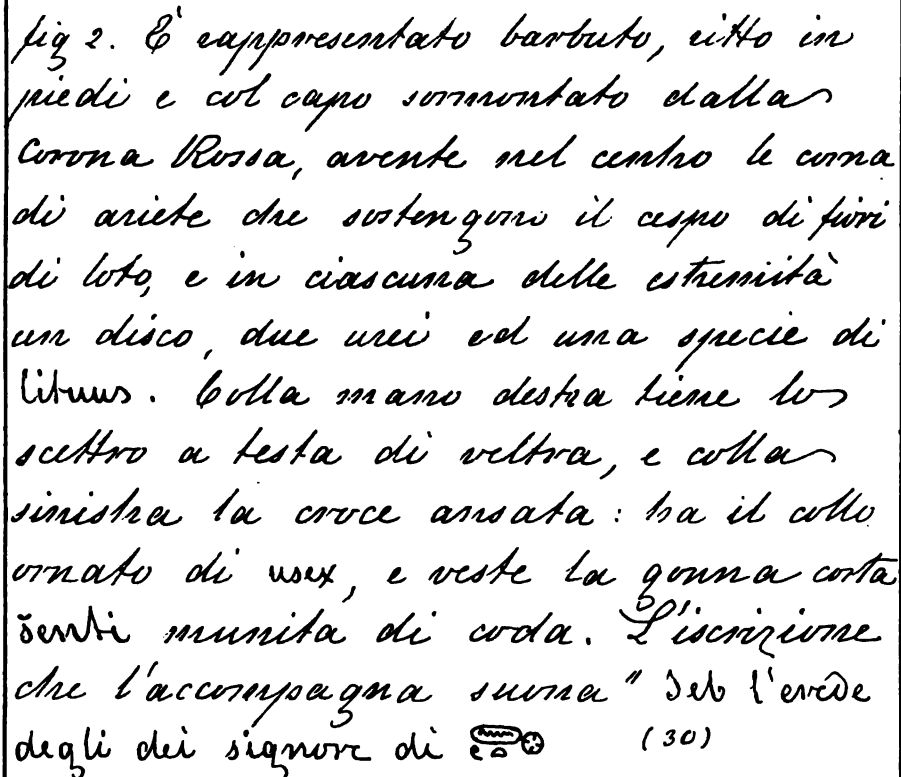 fig 2. É rappresentato barbuto, ritto in
piedi e col capo sormontato dalla
Corona Rossa, avente nel centro le corna
di ariete che sostengono il cespo di fiori
di loto, e in ciascuna delle estremità
un disco, due urei ed una specie di
lituus. Colla mano destra tiene lo
scettro a testa di veltra, e colla
sinistra la croce ansata: ha il collo
ornato di usex, e veste la gonna corta
šenti munita di coda. L'iscrizione
che l'accompagna suona " Seb l'erede
degli dei signore di (30)